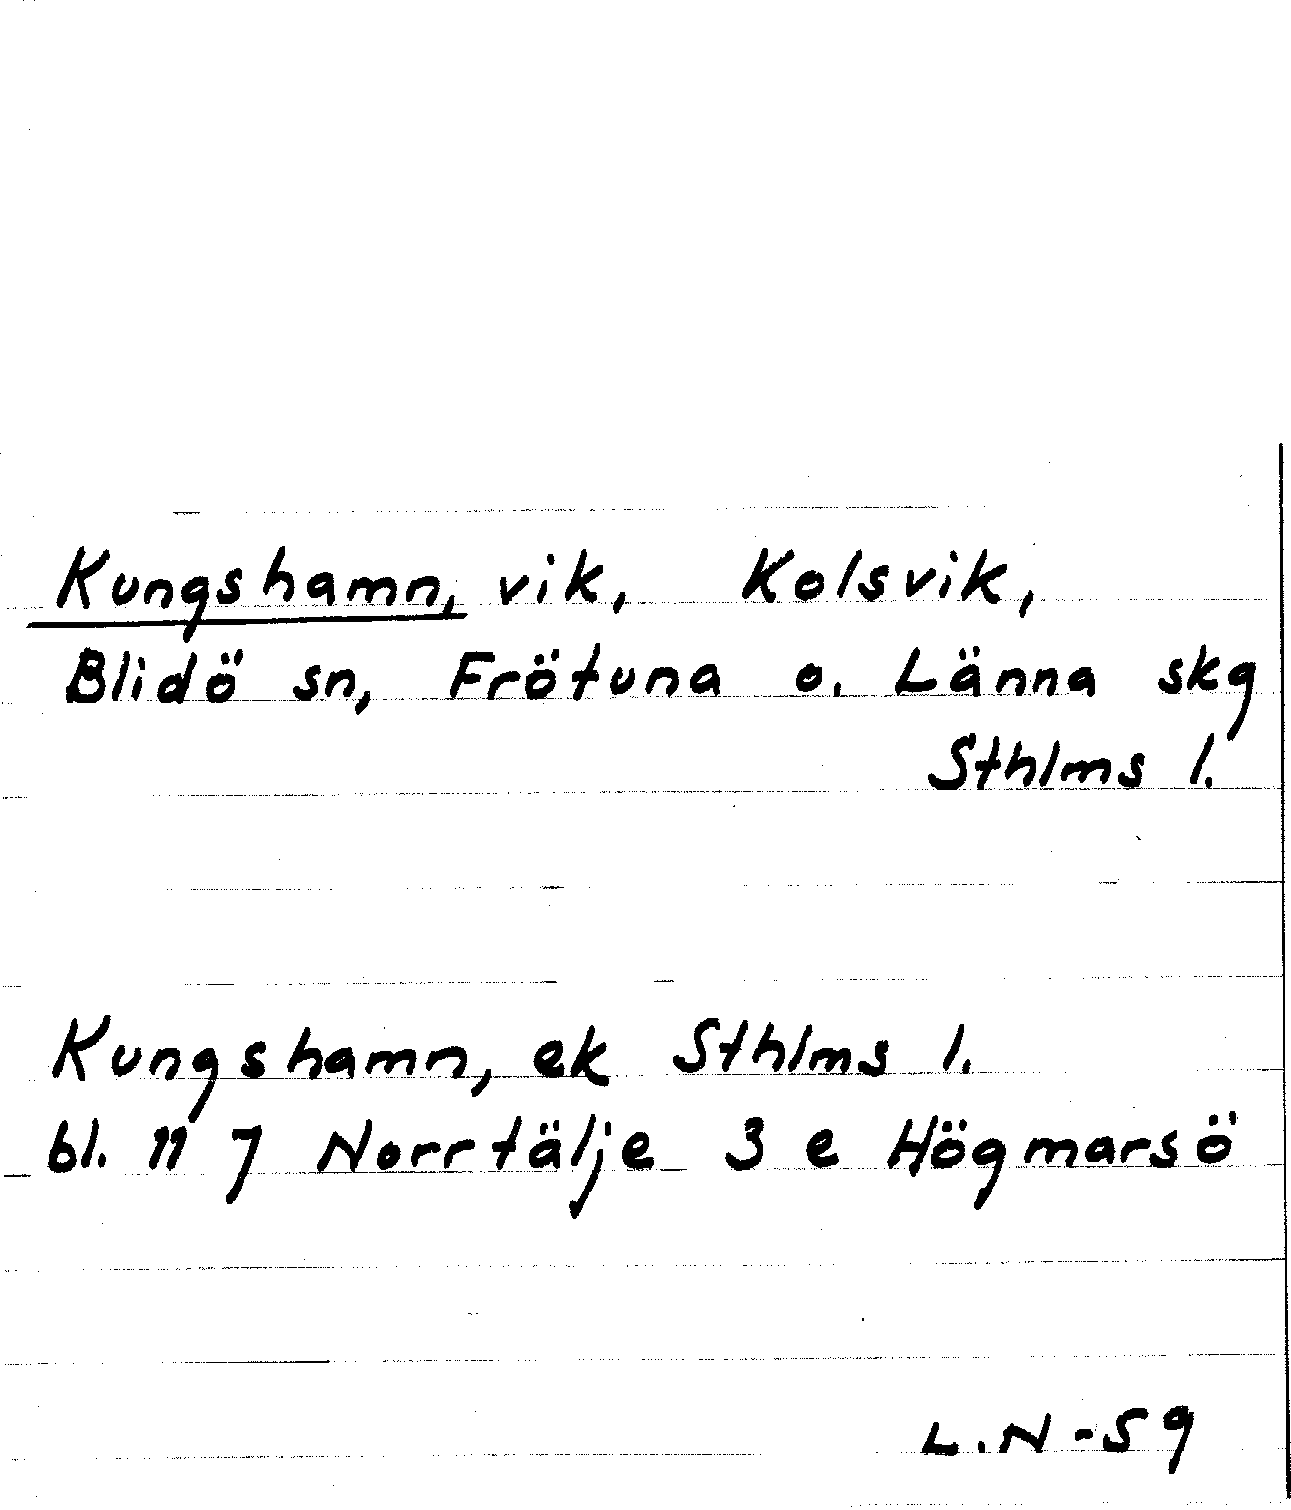 Kungshamn, vik, Kolsvik,
Blidö sn, Frötuna o. Länna skg
Sthlms l.
Kungshamn, ek Sthlms l.
bl. 11 7 Norrtälje 3 e Högmarsö
L.N -59